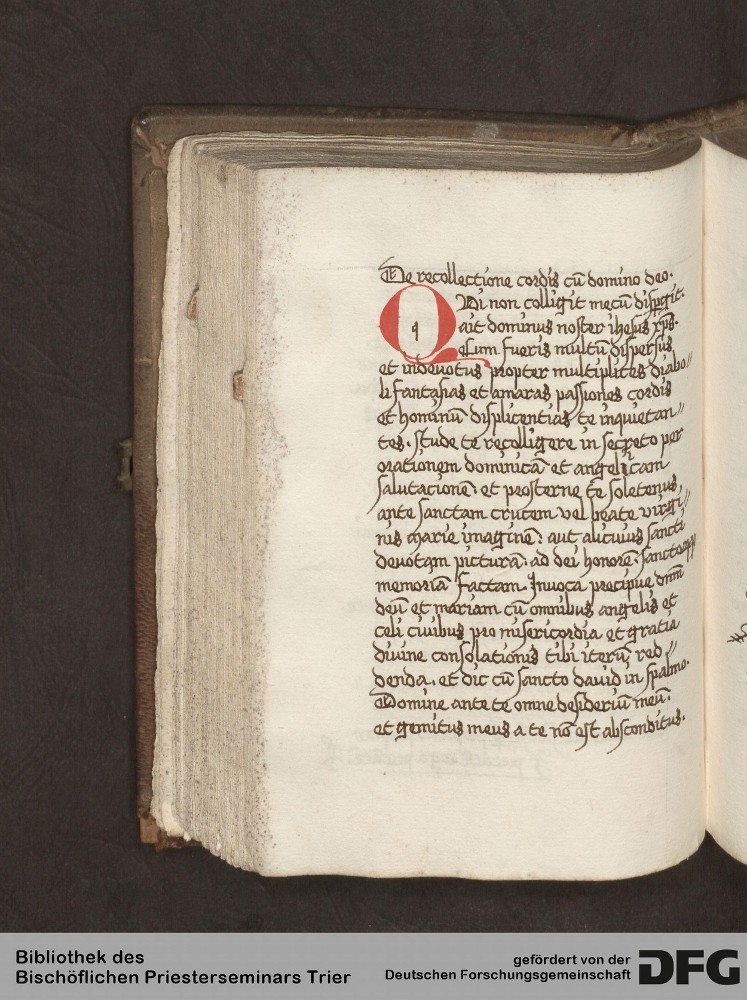 De recollectione cordis cū domino deo.
Qui non colligit mecū disp̄git.
ait dominus noster ihesus xp̄s.
Cum fueris multū dispersus
et indevotus propter multiplices diabo//
li fantasias et amaras passiones cordis
et hominū displicentias te inquietan//
tes. stude te recolligere in secreto per
orationem dominicā et angelicam
salutacionē. et prosterne te soletenus
ante sanctam crucem vel beate virgi//
nis marie imaginē: aut alicuius sancti
devotam picturā. ad dei honorē. sanctoꝝqꝫ
memoriā factam. Invoca precipue dn̄m
deū et mariam cū omnibus angelis et
celi civibus pro misericordia et gratia
divine consolationis tibi iterū red//
denda. et dic cū sancto david in spalmo.
Domine ante te omne desideriū meū.
et gemitus meus a te nō est absconditus.
Bibliothek des
Bischöflichen Priesterseminars Trier
gefördert von der
Deutschen Forschungsgemeinschaft DFG